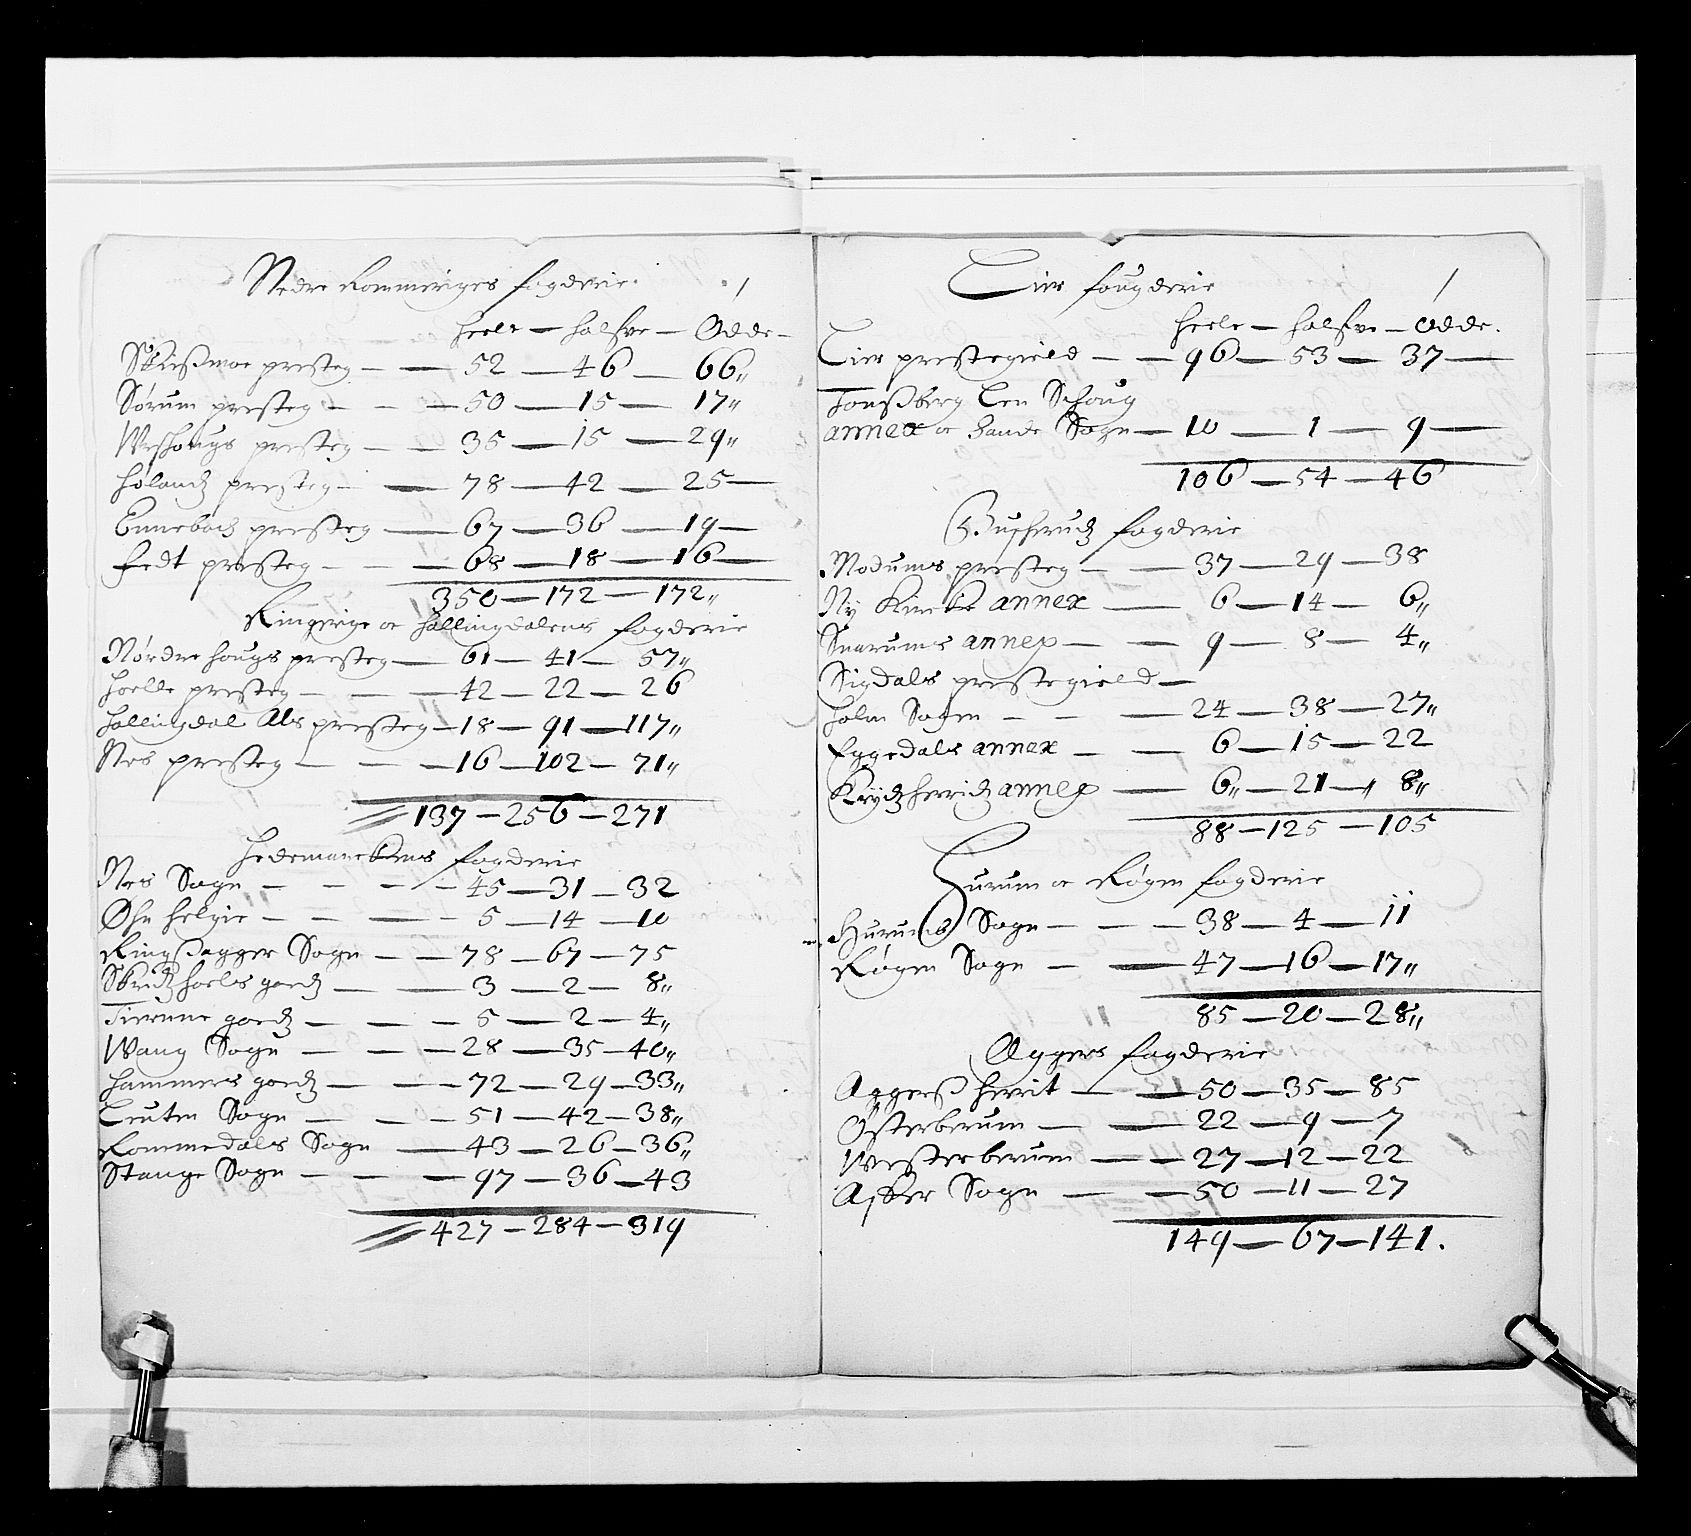 Nedre Rommeriges fogderie.
heele — halfve — Ødde —
Skiesmoe presteg — — 52 — 46 — 66"
Sørum presteg — — — 50 — 15 — 17"
Weshougs presteg — — 35 — 15 — 29"
Hølandz presteg — — 78 — 42 — 25 —
Ennebach presteg — 67 — 36 — 19 —
Fedt presteg — — — 68 — 18 — 16 —
350 — 172 — 172"
Ringerige oc Hallingdalens fogderie
Nørdre Hougs presteg — 61 — 41 — 57"
Hoelle presteg — — — 42 — 22 — 26
Hallingdal Als presteg — 18 — 91 — 117"
Nes presteg — — — 16 — 102 — 71"
137 — 256 — 271
Hedemarckens fogderie
Nes Sogn — — — — 45 — 31 — 32
Øhn Helgie — — — — 5 — 14 — 10
Ringsagger Sogn — — 78 — 67 — 75
Skiedzhoels gield — — 3 — 2 — 8"
Tierune gield — — — 5 — 2 — 4"
Wang Sogn — — — 28 — 35 — 40"
Hammers gield — — — 72 — 29 — 33"
Leuten Sogn — — — 51 — 42 — 38"
Rommedals Sogn — — 43 — 26 — 36"
Stange Sogn — — — 97 — 36 — 43
427 — 284 — 319
Lier fougderie
heele — halfve — Ødde.
Lier prestegield — — 96 — 53 — 37 —
Tonsberg Len Schoug
annex oc Sande Sogn — 10 — 1 — 9 —
106 — 54 — 46
Buscherudz fogderie
Modums presteg — — 37 — 29 — 38
Ny Kircke annex — 6 — 14 — 6"
Snarums annex — — 9 — 8 — 4"
Sigdals prestegield —
Holm Sogn — — — 24 — 38 — 27"
Eggedals annex — — 6 — 15 — 22
Krydzherridz annex — 6" — 21 — " 8"
88 — 125 — 105
Hurum oc Røgen fogderie
Hurums Sogn — — — 38 — 4 — 11
Røgen Sogn — — 47 — 16 — 17"
85 — 20 — 28"
Aggers fogderie
Aggers herrit — — 50 — 35 — 85
Østerberum — — 22 — 9 — 7
Westerberum — — 27 — 12 — 22
Asker Sogn — — 50 — 11 — 27
149 — 67 — 141.